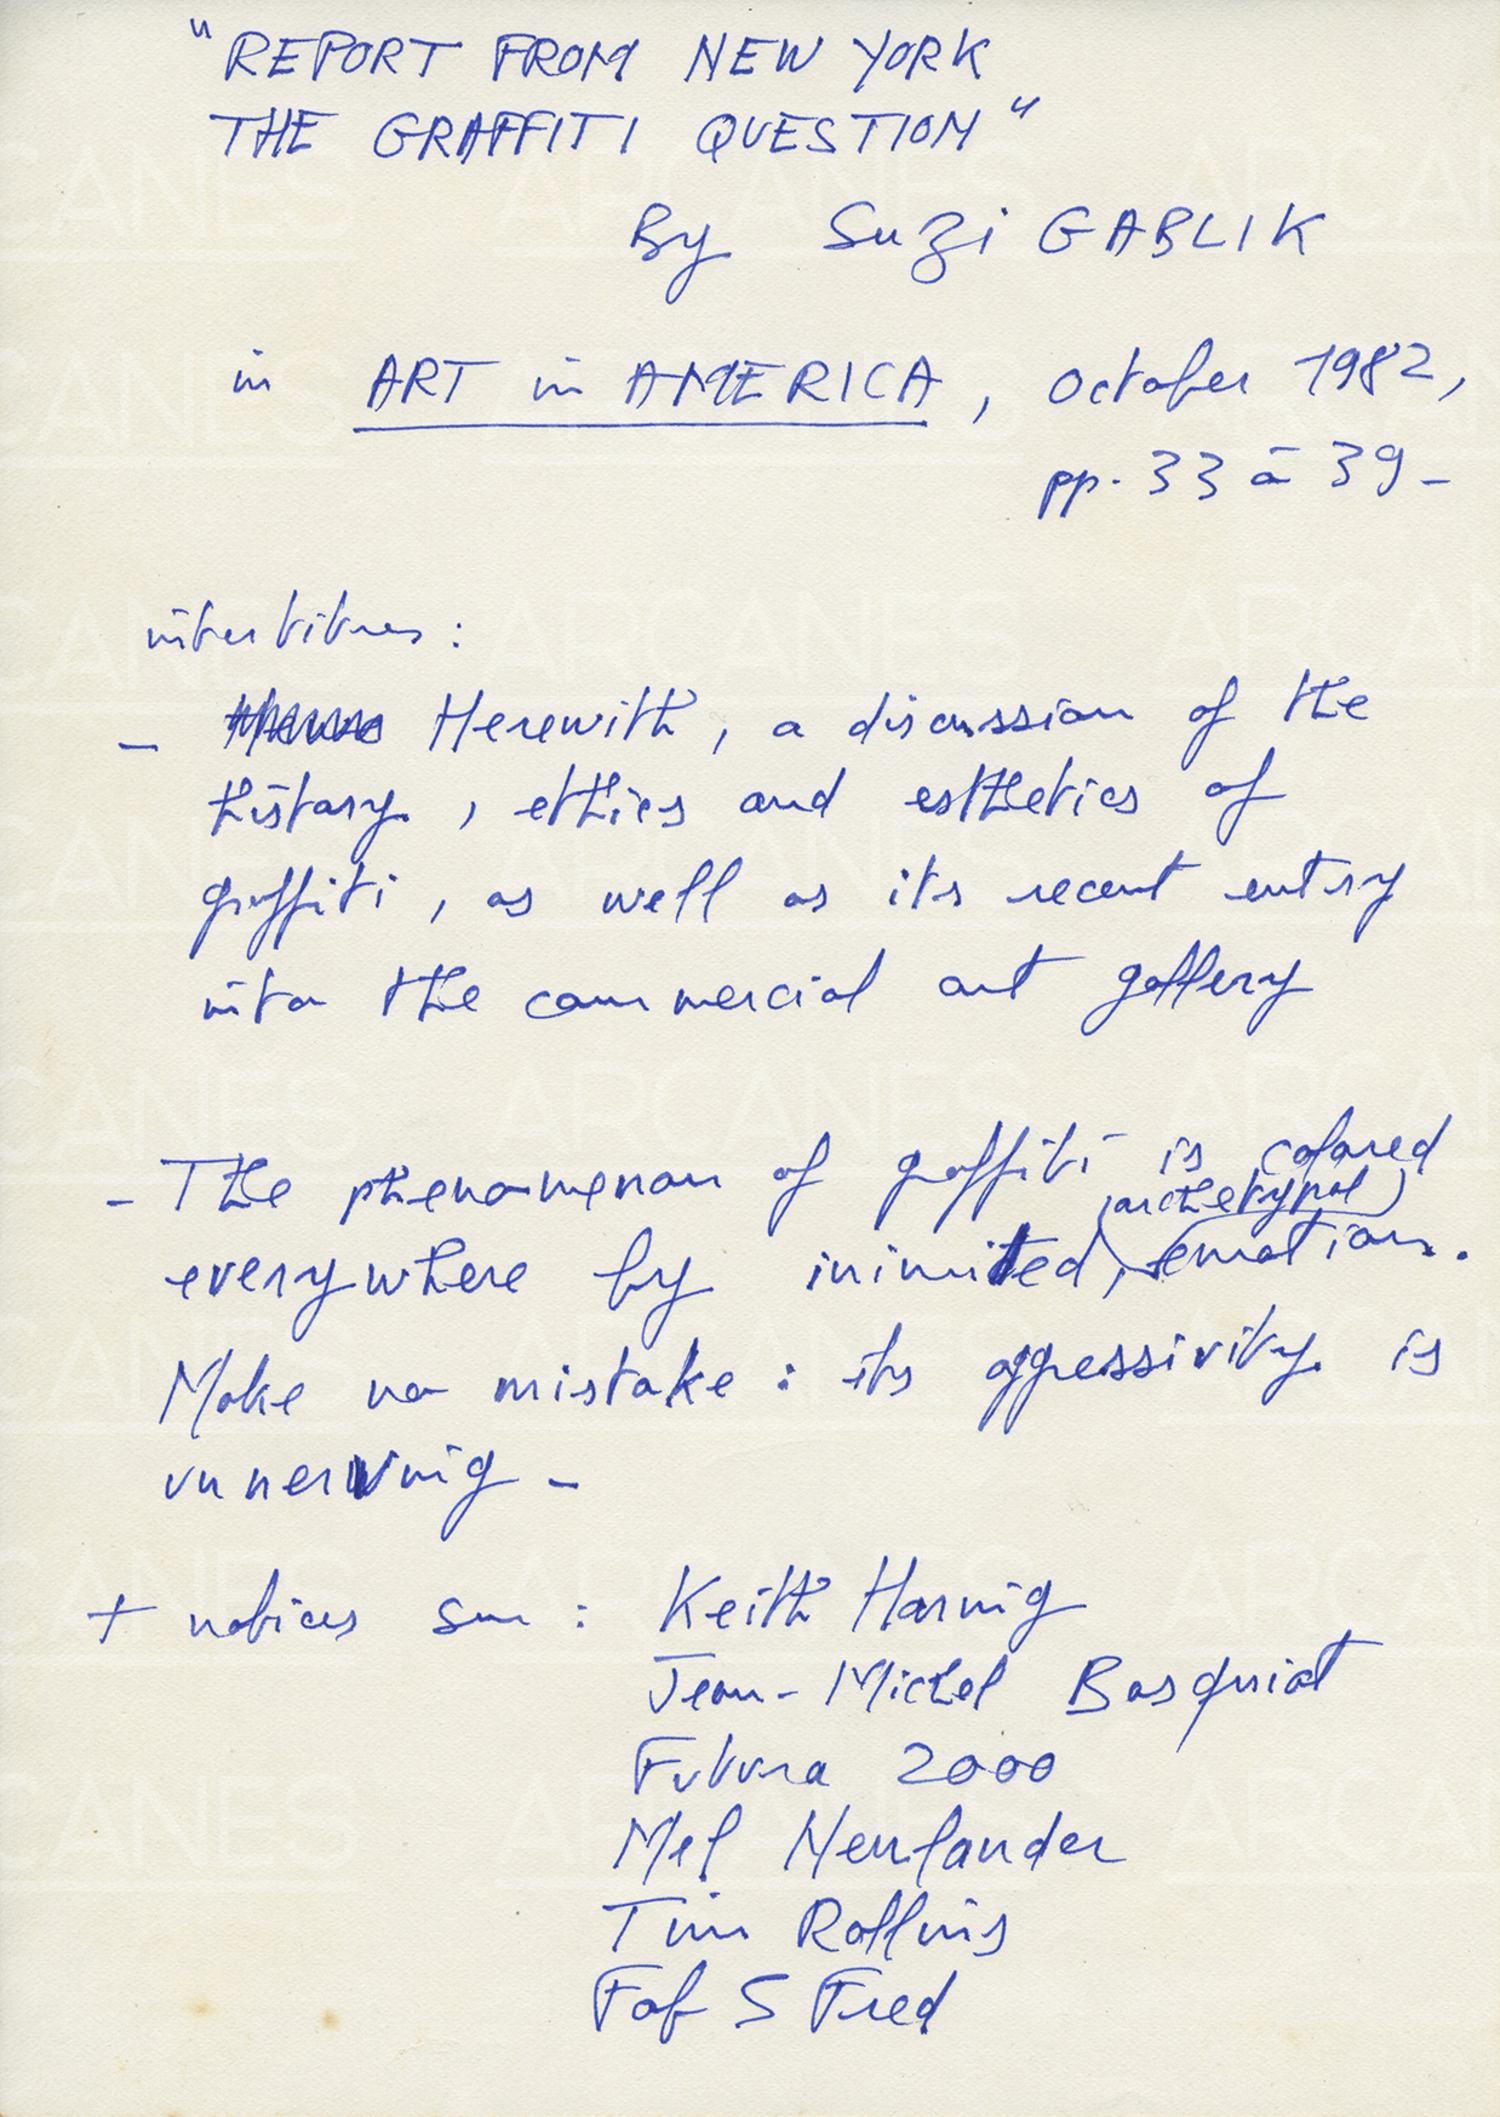 "REPORT FROM NEW YORK
THE GRAFFITI QUESTION"
By Suzi GABLIK
in ART in AMERICA, october 1982,
pp. 33 à 39-
intertitres :
- Herewith, a discussion of the
history, ethics and esthetics of
graffiti, as well as its recent entry
into the commercial art gallery
- The phenomenon of graffiti is colored
(archetypal)
everywhere by inimited, emotion.
Make no mistake : its aggressivity is
unnerving -
+ notices sur : Keith Haring
Jean-Michel Basquiat
Futura 2000
Mel Neulander
Tim Rollins
Fab 5 Fred
ARCANES